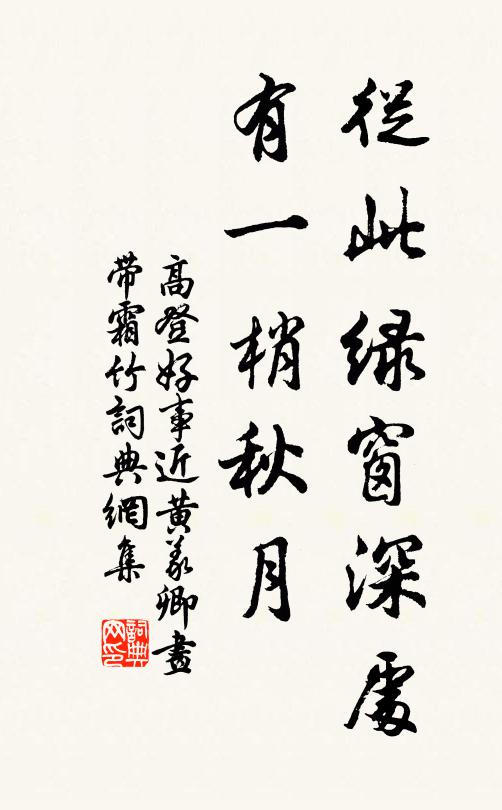 從此緑窗深處
有一梢秋月
高登好事近黄義卿畫
帶霜竹詞典網集
詞典網印